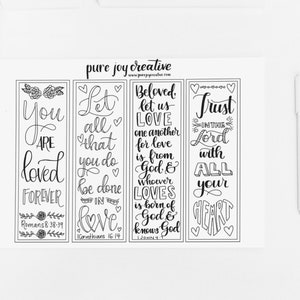 pure joy creative
www.purejoycreative.com
You
ARE
loved
FOREVER
Romans 8:38-39
Let
all
that
you do
be done
IN
love
1 Corinthians 16:14
Beloved,
let us
LOVE
one another
for love
is from
God, &
whoever
LOVES
is born of
God &
knows God
Trust
IN THE
Lord
with
ALL
your
HEART